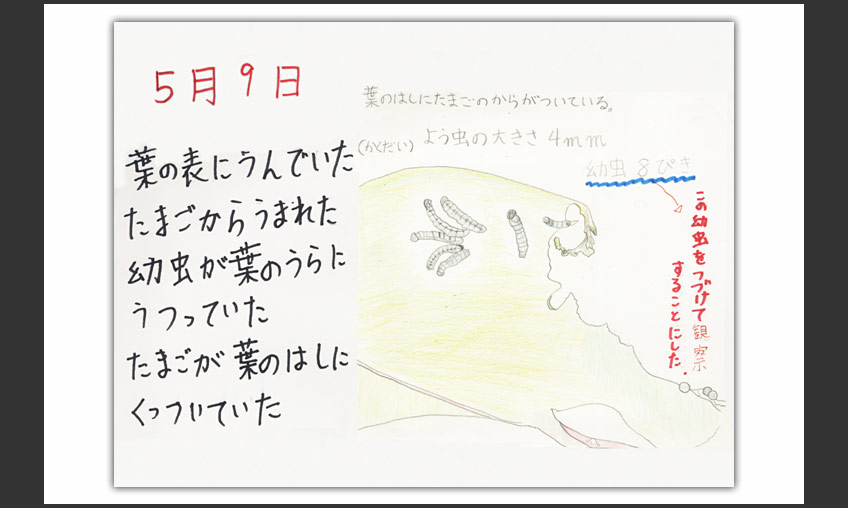 5月9日
葉の表にうんでいた
たまごからうまれた
幼虫が葉のうらに
うつっていた
たまごが葉のはしに
くっついていた
葉のはしにたまごのからがついている。
(かくだい) よう虫の大きさ 4mm
幼虫 8ぴき
この幼虫をつづけて観察
することにした.